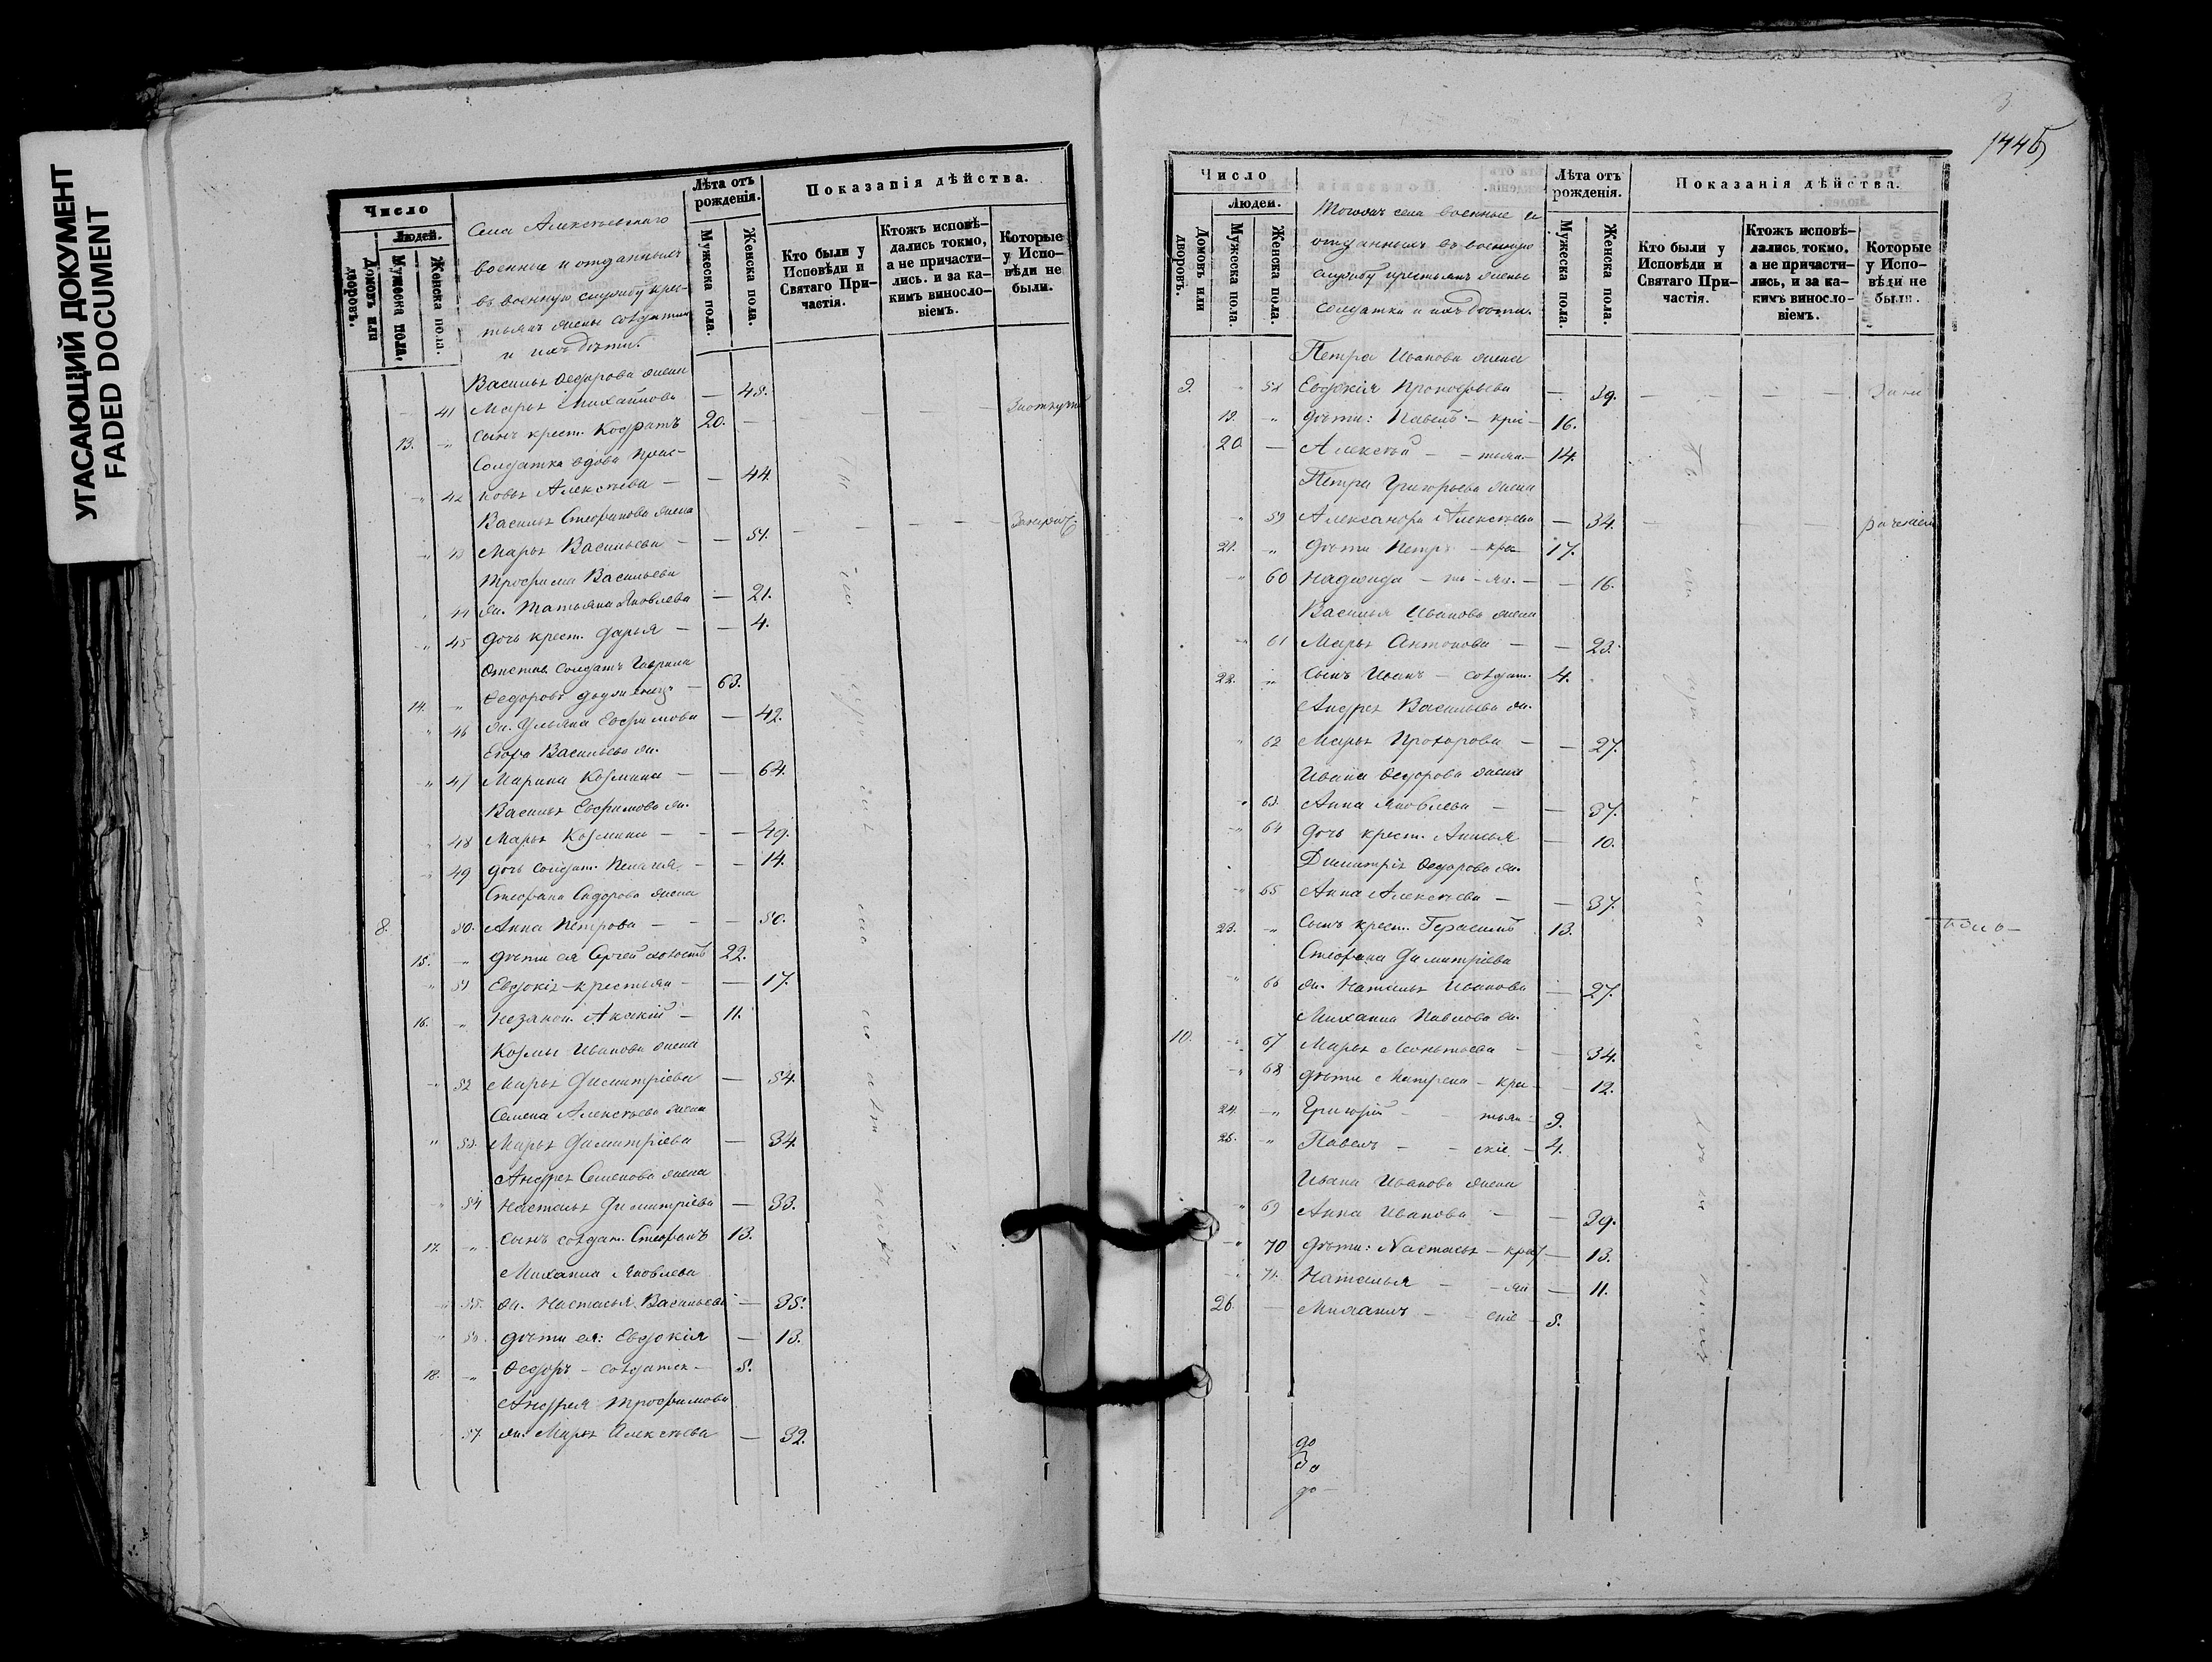 УГАСАЮЩИЙ ДОКУМЕНТ
FADED DOCUMENT
Число
Людей.
Домовъ или дворовъ.
Мужеска пола.
Женска пола.
Села Алексѣевскаго
военные и отданныхъ
въ военную службу крес-
тьянъ жены солдатки
и ихъ дѣти.
Лѣта отъ рожденія.
Мужеска пола.
Женска пола.
Показанія дѣйства.
Кто были у Исповѣди и Святаго При-частія.
Ктожъ исповѣ-дались токмо, а не причасти-лись. и за ка-кимъ винсло-віемъ.
Которые у Испо-вѣди не были.
Василья Ѳедорова жена
41 Марья Михайлова — 48.
13. " Сынъ крест. Кодратъ 20. —
Солдатка вдова Прас-
" 42 ковья Алексѣева — — 44.
Василья Стефанова жена
" 43 Марья Васильева — — 51.
Трофима Васильева
" 44 жн. Татьяна Яковлева — 21.
" 45 дочь крест. Дарья — — 4.
Отстав. солдатъ Гаврила
14. " Ѳедоровъ — 63.
" 46 жн. Ульяна Ефимова — 42.
Егора Васильева жн.
" 47 Марина Козмина — — 64.
Василья Ефимова жн.
" 48 Марья Козмина — — 49.
" 49 дочь солдат. Пелагея — — 14.
Стефана Сидорова жена
8. 50. Анна Петрова — — 50.
15. " дѣти ея Сергей холостъ 22.
" 51 Евдокія — крестьян — — 17.
16. " Незакон. Акакій — 11.
Козмы Иванова жена
" 52 Марья Димитріева — 54.
Семена Алексѣева жена
" 53. Марья Димитріева — 34.
Андрея Семенова жена
" 54 Настасья Димитріева — 33.
17. " Сынъ солдат. Стефанъ 13.
Михаила Яковлева
55. жн. Настасья Васильева — 35.
56. дѣти ея: Евдокія — 13.
18. " Ѳедоръ — солдатск — 5.
Андрея Трофимова
57 жн. Марья Алексѣева — 32.
3
1446
Число
Людей.
Домовъ или дворовъ.
Мужеска пола.
Женска пола.
Тогожъ села военные и
отданныхъ въ военную
службу крестьянъ жены
солдатки и ихъ дѣти.
Лѣта отъ рожденія.
Мужеска пола.
Женска пола.
Показанія дѣйства.
Кто были у Исповѣди и Святаго При-частія.
Ктожъ исповѣ-дались токмо, а не причасти-лись, и за ка-кимъ винсло-віемъ.
Которые у Испо-вѣди не были.
Петра Иванова жена
9. " 58 Евдокія Прокофьева — 39.
19. " дѣти: Павелъ — крес — 16.
20. — Алексѣй — — тьян — 14.
Петра Григорьева жена
" 59 Александра Алексѣева — 34.
21. " дѣти Петръ — крес 17.
" 60 Надежда — ть — ян. — — 16.
Василья Иванова жена
" 61 Марья Антонова — — 23.
22. " Сынъ Иванъ — солдат. 4.
Андрея Васильева жн.
" 62 Марья Прохорова — — 27.
Ивана Ѳедорова жена
" 63. Анна Яковлева — — 37.
" 64 дочь крест. Анисья — 10.
Димитрія Ѳедорова жн.
" 65 Анна Алексѣева — — 37.
23. " Сынъ крест. Герасимъ 13.
Стефана Димитріева
" 66 жн. Наталья Иванова — 27.
Михаила Павлова жн.
10. " 67 Марья Леонтьева — — 34.
" 68 дѣти Матрена — крес — 12.
24. " Григорій — — тьян — 9.
25. " Павелъ — — скіе — 4.
Ивана Иванова жена
" 69 Анна Иванова — — 39.
" 70 дѣти: Настасья — крес — 13.
" 71. Наталья — — ян — 11.
26. — Михаилъ — — скіе — 5.
до
За
до